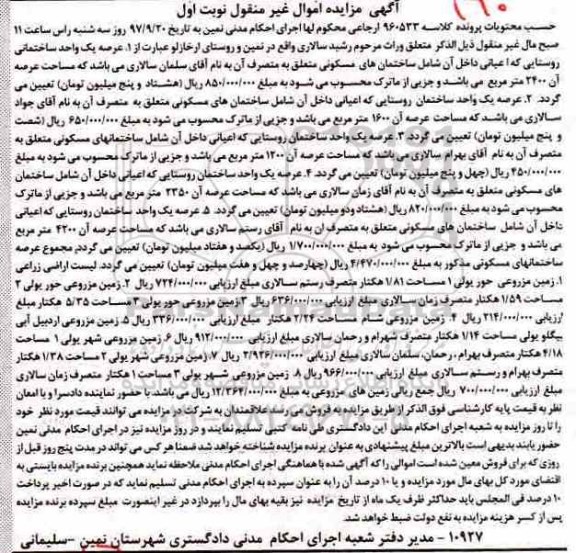 آگهی مزایده اموال غیر منقول نوبت اول
حسب محتویات پرونده کلاسه ۹۶۰۵۳۳ ارجاعی محکوم لها اجرای احکام مدنی نمین به تاریخ ۹۷/۹/۲۰ روز سه شنبه راس ساعت ۱۱
صبح مال غیر منقول ذیل الذکر متعلق وراث مرحوم رشید سالاری واقع در نمین و روستای ارخازلو عبارت از ۱. عرصه یک واحد ساختمانی
روستایی که اعیانی داخل آن شامل ساختمان های مسکونی متعلق به متصرف آن به نام آقای سلمان سالاری می باشد که مساحت عرصه
آن ۲۴۰۰ متر مربع می باشد و جزیی از ماترک محسوب می شود به مبلغ ۸۵۰/۰۰۰/۰۰۰ ریال (هشتاد و پنج میلیون تومان) تعیین می
گردد. ۲. عرصه یک واحد ساختمان روستایی که اعیانی داخل آن شامل ساختمان های مسکونی متعلق به متصرف آن به نام آقای جواد
سالاری می باشد که مساحت عرصه آن ۱۶۰۰ متر مربع می باشد و جزیی از ماترک محسوب می شود به مبلغ ۶۵۰/۰۰۰/۰۰۰ ریال (شصت
و پنج میلیون تومان) تعیین می گردد. ۳. عرصه یک واحد ساختمان روستایی که اعیانی داخل آن شامل ساختمانهای مسکونی متعلق به
متصرف آن به نام آقای بهرام سالاری می باشد که مساحت عرصه آن ۱۲۰۰ متر مربع می باشد و جزیی از ماترک محسوب می شود به مبلغ
۴۵۰/۰۰۰/۰۰۰ ریال (چهل و پنج میلیون تومان) تعیین می گردد. ۴. عرصه یک واحد ساختمان روستایی که اعیانی داخل آن شامل ساختمان
های مسکونی متعلق به متصرف آن به نام آقای زمان سالاری می باشد که مساحت عرصه آن ۲۳۵۰ متر مربع می باشد و جزیی از ماترک
محسوب می شود به مبلغ ۸۲۰/۰۰۰/۰۰۰ ریال (هشتاد و دو میلیون تومان) تعیین می گردد. ۵. عرصه یک واحد ساختمان روستایی که اعیانی
داخل آن شامل ساختمان های مسکونی متعلق به متصرف ان به نام آقای رستم سالاری می باشد که مساحت عرصه آن ۴۲۰۰ متر مربع
می باشد و جزیی از ماترک محسوب می شود به مبلغ ۱/۷۰۰/۰۰۰/۰۰۰ ریال (یکصد و هفتاد میلیون تومان) تعیین می گردد. مجموع عرصه
ساختمانهای مسکونی مذکور به مبلغ ۴/۴۷۰/۰۰۰/۰۰۰ ریال (چهارصد و چهل و هفت میلیون تومان) تعیین می گردد. لیست اراضی زراعی
۱. زمین مزروعی حور یولی ۱ مساحت ۱/۸۱ هکتار متصرف رستم سالاری مبلغ ارزیابی ۷۲۴/۰۰۰/۰۰۰ ریال ۲. زمین مزروعی حور یولی ۲
مساحت ۱/۵۹ هکتار متصرف زمان سالاری مبلغ ارزیابی ۶۳۶/۰۰۰/۰۰۰ ریال ۳. زمین مزروعی حور یولی ۳ مساحت ۵/۳۵ هکتار مبلغ
ارزیابی ۲۱۴/۰۰۰/۰۰۰ ریال ۴. زمین مزروعی شام مساحت ۲/۲۴ هکتار مبلغ ارزیابی ۳۳۶/۰۰۰/۰۰۰ ریال ۵. زمین مزروعی اردبیل آبی
بیگلو یولی مساحت ۱/۱۴ هکتار متصرف شهرام و رحمان سالاری مبلغ ارزیابی ۹۱۲/۰۰۰/۰۰۰ ریال ۶. زمین مزروعی شهر یولی ۱ مساحت
۴/۱۸ هکتار متصرف بهرام، رحمان، سلمان سالاری مبلغ ارزیابی ۲/۹۲۶/۰۰۰/۰۰۰ ریال ۷. زمین مزروعی شهر یولی ۲ مساحت ۱/۳۸ هکتار
متصرف بهرام و رستم سالاری مبلغ ارزیابی ۹۶۶/۰۰۰/۰۰۰ ریال ۸. زمین مزروعی شهر یولی ۳ مساحت ۱ هکتار متصرف زمان سالاری
مبلغ ارزیابی ۷۰۰/۰۰۰/۰۰۰ ریال جمع ریالی زمین های مزروعی به مبلغ ۱۲/۳۶۴/۰۰۰/۰۰۰ می باشد. با حضور نماینده دادسرا و با امعان
نظر به قیمت پایه کارشناسی فوق الذکر از طریق مزایده به فروش می رسد. علاقمندان به شرکت در مزایده می توانند قیمت مورد نظر خود
را تا روز مزایده به شعبه اجرای احکام مدنی این دادگستری طی نامه کتبی تسلیم نمایند و در روز مزایده نیز در اجرای احکام مدنی نمین
حضور یابند بدیهی است بالاترین مبلغ پیشنهادی به عنوان برنده مزایده شناخته خواهد شد ضمنا هر کس می تواند در مدت پنج روز قبل از
روزی که برای فروش معین شده است اموالی را که آگهی شده با هماهنگی اجرای احکام مدنی ملاحظه نماید همچنین برنده مزایده بایستی به
اقتضای مورد کل بهای مال مورد مزایده و یا ۱۰ درصد آن را به عنوان سپرده به اجرای احکام مدنی تسلیم نماید که در صورت اخیر پرداخت
۱۰ درصد فی المجلس باید حداکثر ظرف یک ماه از تاریخ مزایده نیز بقیه بهای مال را بپردازد در غیر اینصورت مبلغ سپرده برنده مزایده
پس از کسر هزینه مزایده به نفع دولت ضبط خواهد شد.
۱۰۹۲۷ - مدیر دفتر شعبه اجرای احکام مدنی دادگستری شهرستان نمین - سلیمانی